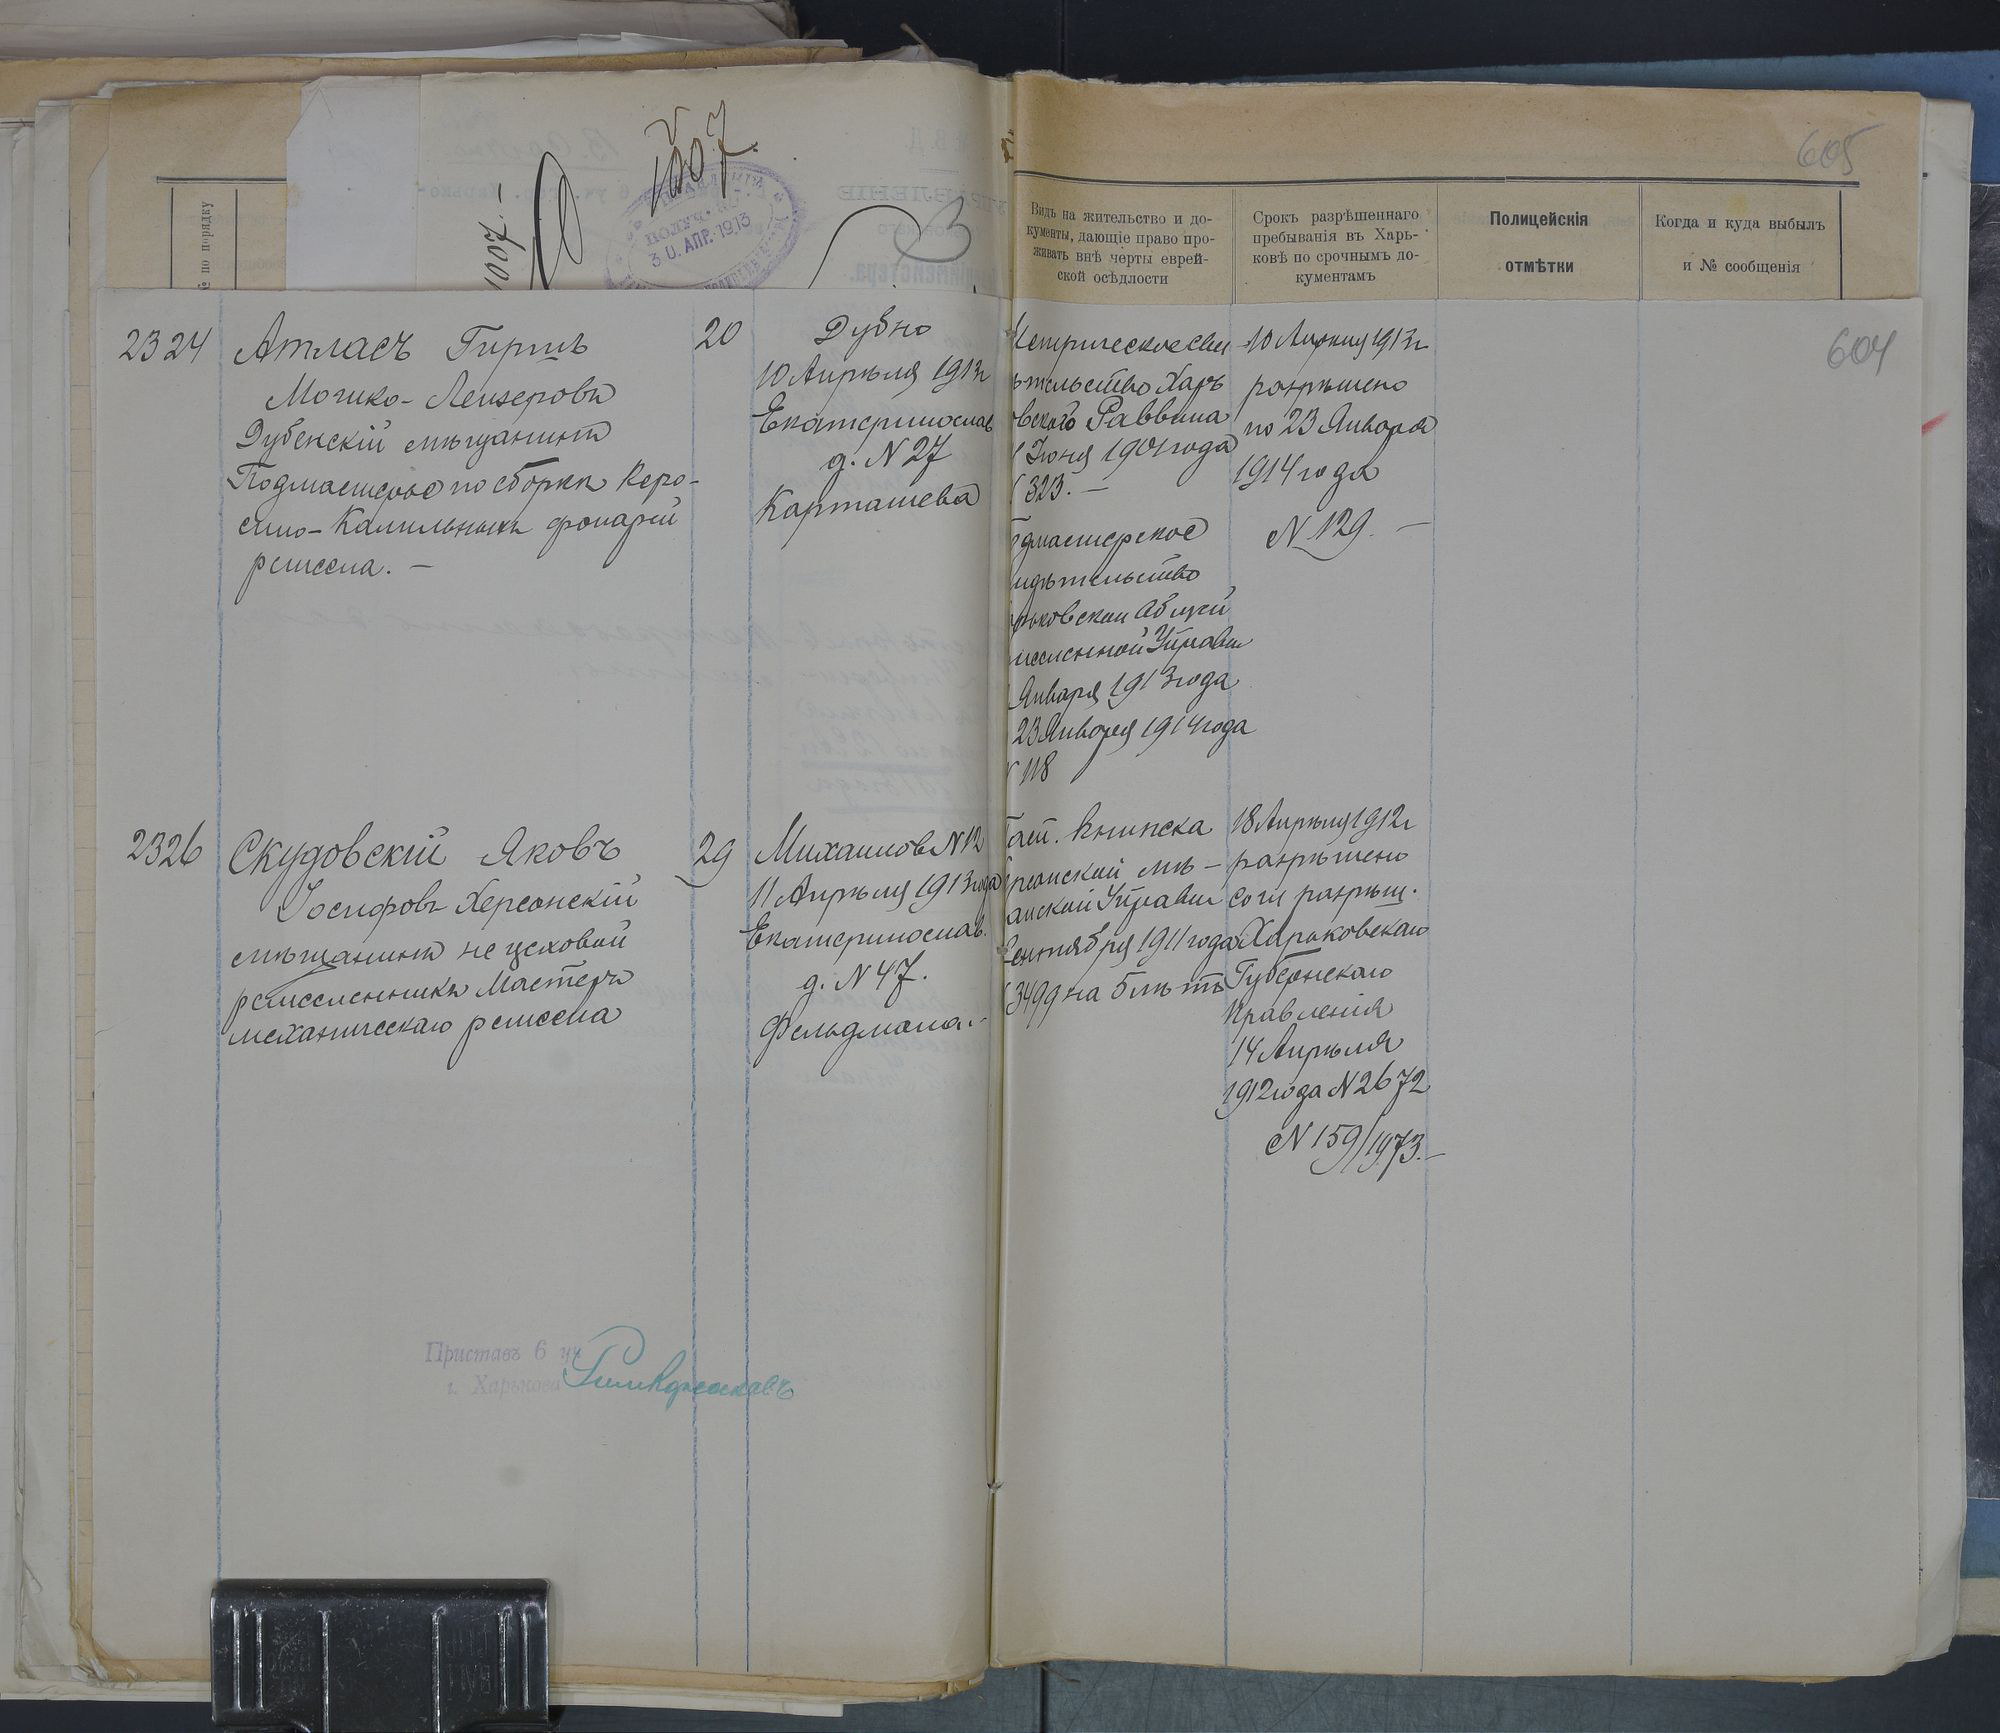 605
604
1007.
1007.—
ПОЛУЧ.
30. АПР. 1913
№ по порядку
Видъ на жительство и до-
кументы, дающіе право про-
живать внѣ черты еврей-
ской осѣдлости
Срокъ разрѣшеннаго
пребыванія въ Харь-
ковѣ по срочнымъ до-
кументамъ
Полицейскія
отмѣтки
Когда и куда выбылъ
и № сообщенія
2324
Атласъ Гиршъ
Мошко-Лейзеровъ
Дубенскій мѣщанинъ
Подмастерье по сборкѣ Керо-
сино-Калильныхъ фонарей
ремесла.—
20
Дубно
10 Апрѣля 1913г
Екатеринослав
д. N 27
Карташева
Метрическое сви
ѣтельство Харь
овского Раввина
Іюня 1901 года
323.—
дмастерское
идѣтельство
рьковской Общей
месленной Управы
Января 1913 года
23 Января 1914 года
N 118
10 Апрѣля 1913г
разрѣшено
по 23 Января
1914 года
N 129.—
2326
Скудовскій Яковъ
Іосифовъ Херсонскій
мѣщанинъ не цеховой
ремесленникъ Мастеръ
механическаго ремесла
29
Михайлов N 12
11 Апрѣля 1913 года
Екатеринослав.
д. N 47.
Фельдмана.—
Пасп. книжка
рсонской мѣ-
анской Управы
Сентября 1911 года
3499 на 5 лѣтъ
18 Апрѣля 1912г
разрѣшено
согл разрѣш.
Харьковскаго
Губернскаго
Правленія
14 Апрѣля
1912 года N 2672
N 159/1973.—
Приставъ 6 уч
г. Харькова